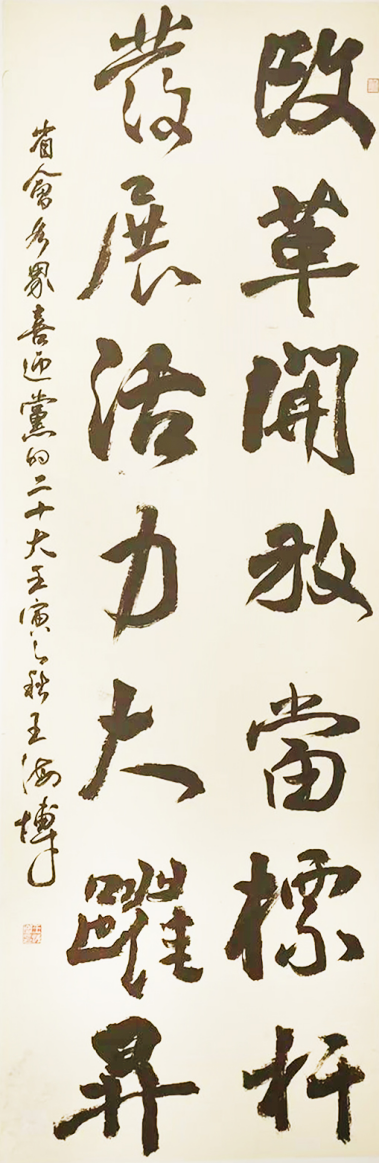 改革開放當標杆
發展活力大躍昇
省會各界喜迎黨的二十大壬寅之秋王海博